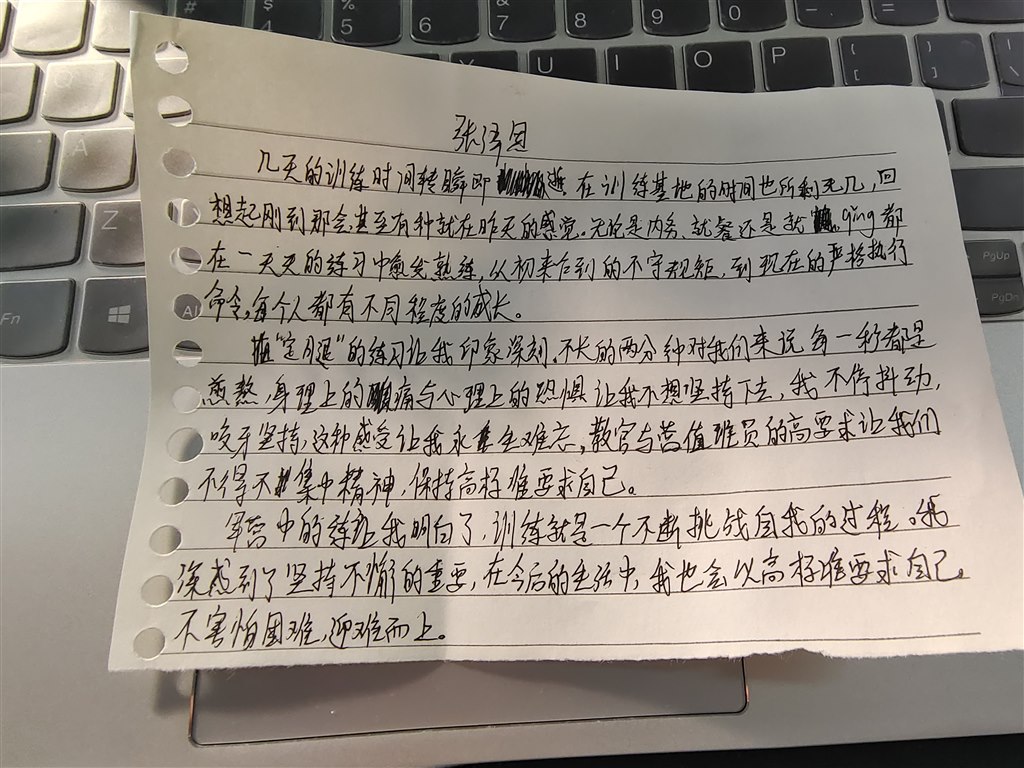 $ 4
% 5
^ 6
& 7
* 8
( 9
) 0
Y U I O P { [ } ]
Q
A
Z
Fn
Alt
PgUp
PgDn
张泽
几天的训练时间转瞬即逝在训练基地的时间也所剩无几,回
想起刚到那会,甚至有种就在昨天的感觉。无论是内务、就餐还是就qǐng都
在一天天的练习中愈发熟练,从初来乍到的不守规矩,到现在的严格执行
命令,每个人都有不同程度的成长。
"定腿"的练习让我印象深刻。不长的两分钟对我们来说每一秒都是
煎熬,身理上的痛与心理上的恐惧让我不想坚持下去,我不停抖动,
咬牙坚持,这种感受让我永生难忘,教官与营值班员的高要求让我们
不得不集中精神,保持高标准要求自己。
军营中的练让我明白了,训练就是一个不断挑战自我的过程。我
深感到了坚持不懈的重要,在今后的生活中,我也会以高标准要求自己。
不害怕困难,迎难而上。